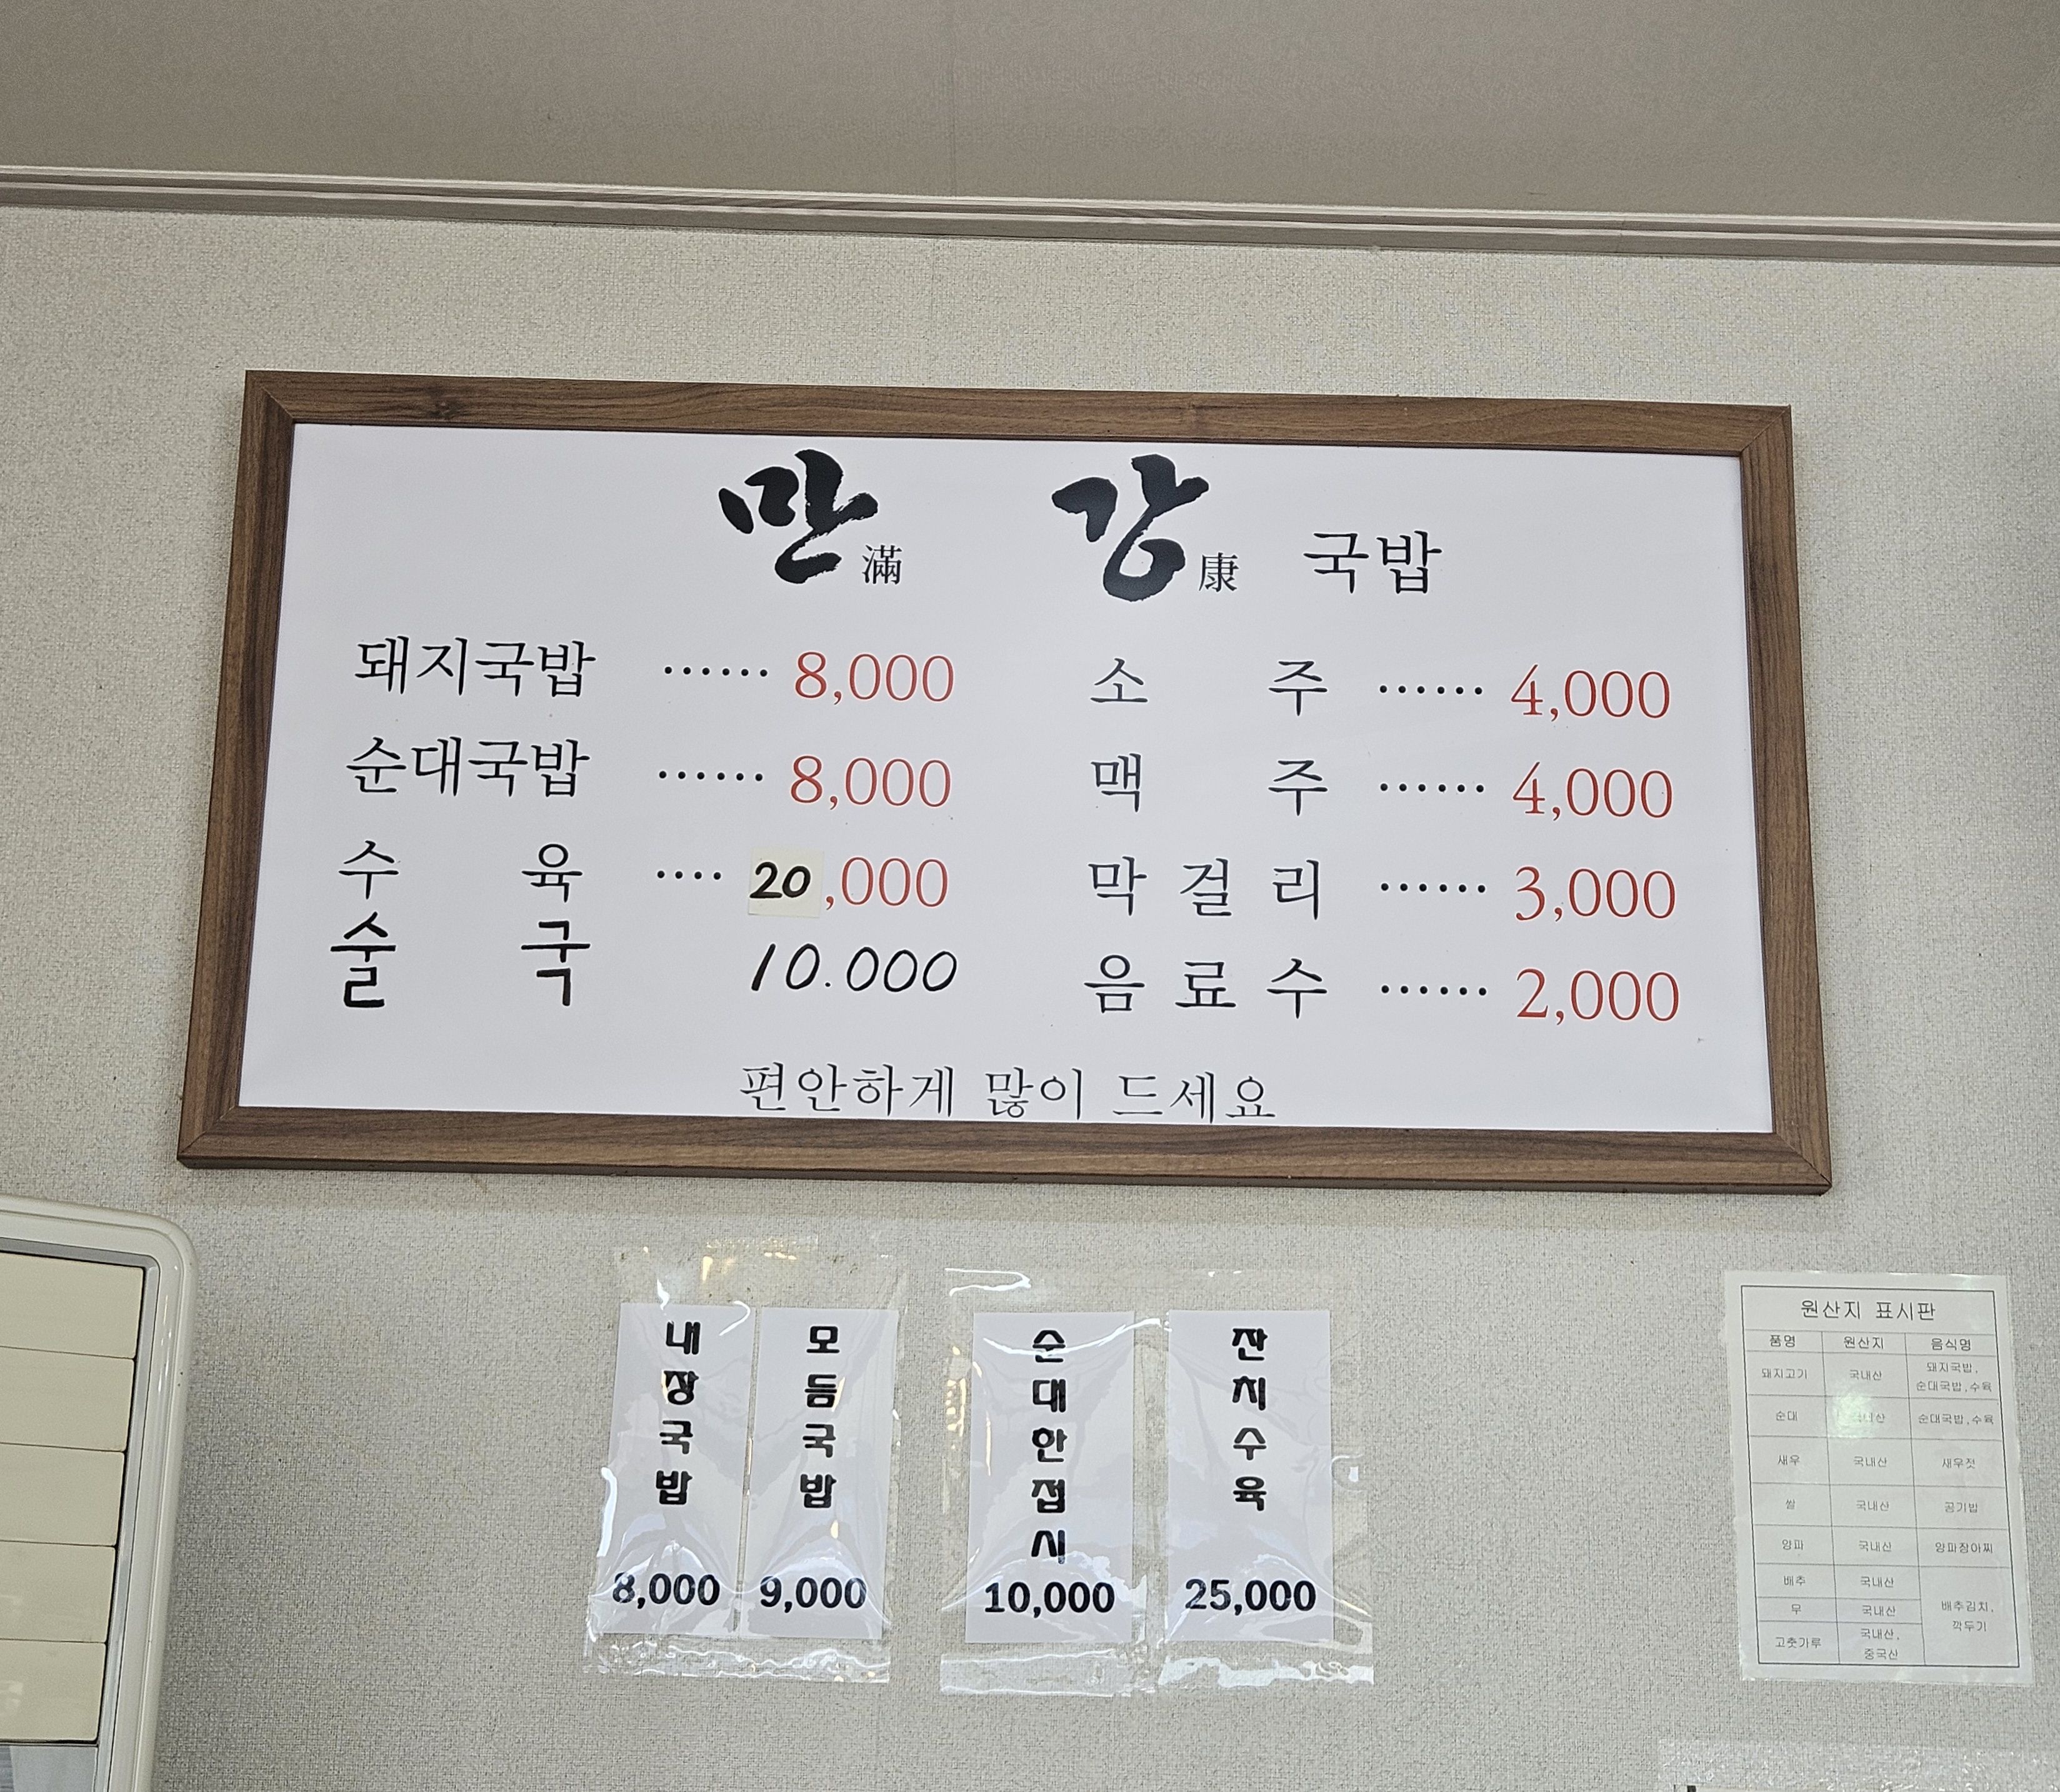 만滿 강康 국밥
돼지국밥 ······ 8,000
순대국밥 ······ 8,000
수 육 ···· 20,000
술 국 10.000
소 주 ······ 4,000
맥 주 ······ 4,000
막 걸 리 ······ 3,000
음 료 수 ······ 2,000
편안하게 많이 드세요
내장국밥
8,000
모듬국밥
9,000
순대한접시
10,000
잔치수육
25,000
원산지 표시판
품명 원산지 음식명
돼지고기 국내산 돼지국밥,
순대국밥,수육
순대 국내산 순대국밥,수육
새우 국내산 새우젓
쌀 국내산 공기밥
양파 국내산 양파장아찌
배추 국내산 배추김치,
깍두기
무 국내산
고춧가루 국내산,
중국산